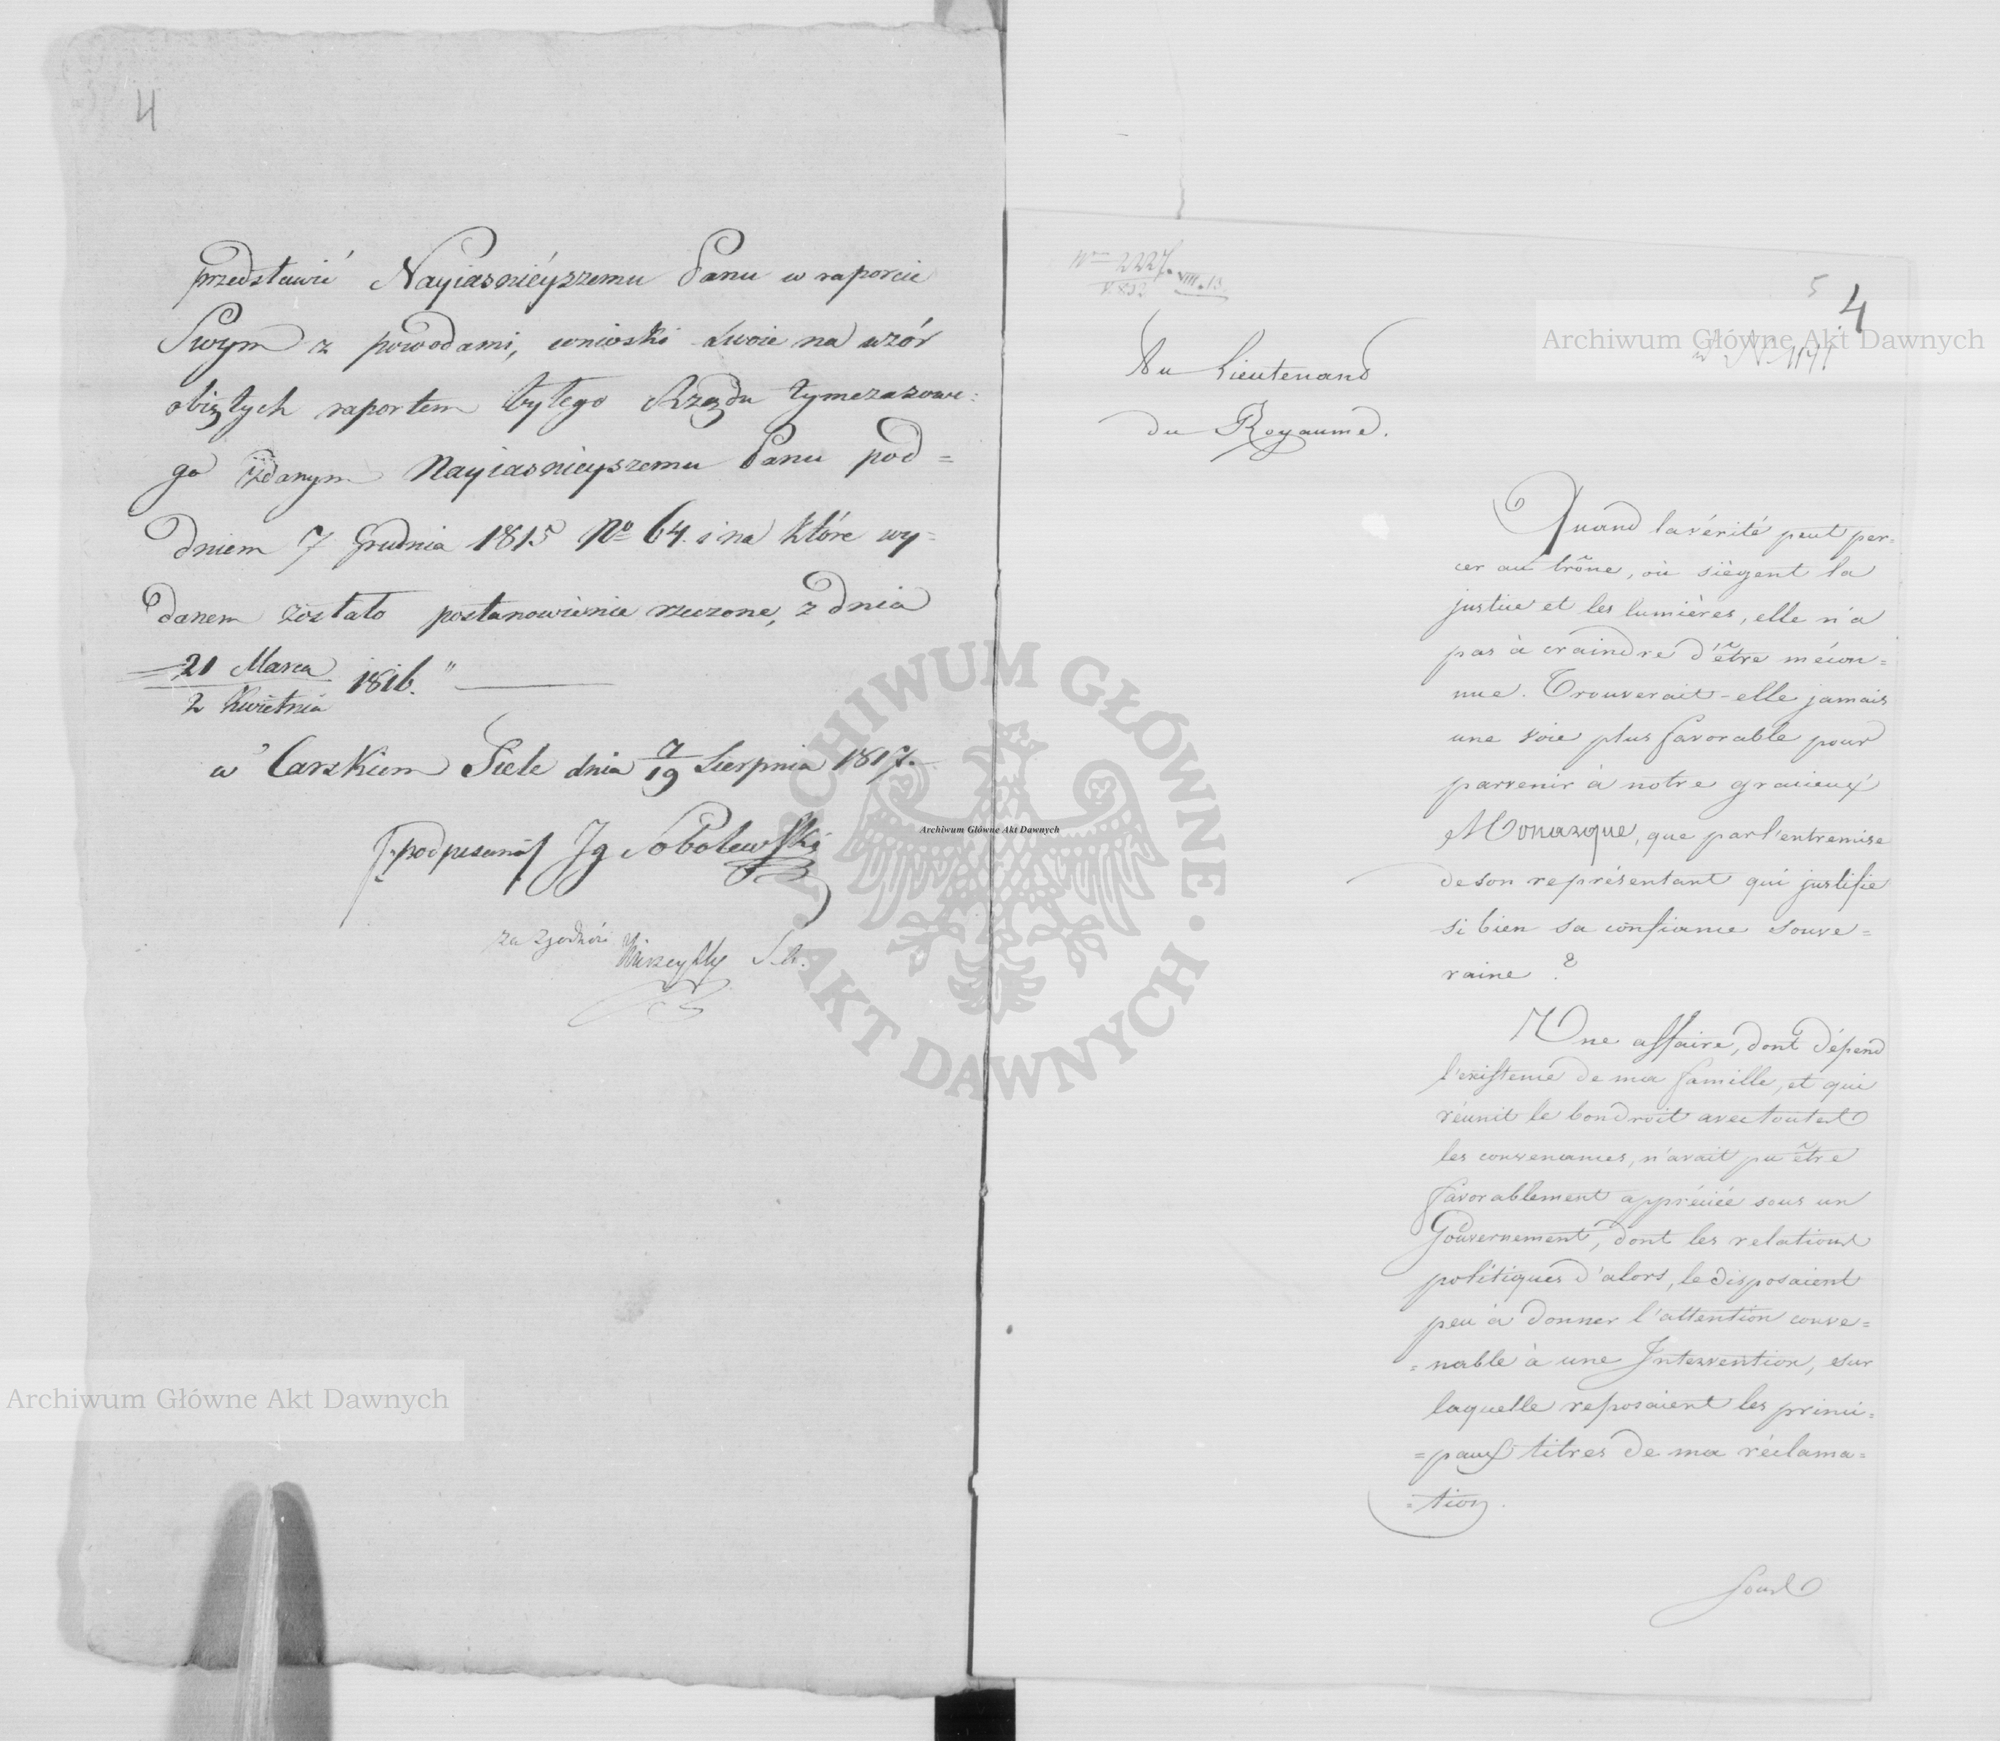 4
przedstawić Nayiasnieyszemu Panu w raporcie
Swym z powodami, wnioski swoie na wzór
obiętych raportem byłego Rządu tymczasowe=
go zdanym Nayiasnieyszemu Panu pod=
dniem 7 Grudnia 1815 No 64. i na które wy=
danem zostało postanowienie rzeczone, z dnia
21 Marca / 2 Kwietnia 1816."
w Carskiem Siele dnia 7/19 Sierpnia 1817.
/:podpisano/ Ig Sobolewski
za zgodność
5 4
Au Lieutenand
du Royaume.
Quand la vérité peut per=
cer au trône, où siègent la
justice et les lumières, elle n'a
pas à craindre d'être mécon=
nue. Trouverait-elle jamais
une voie plus favorable pour
parvenir à notre gracieux
Monarque, que par l'entremise
de son représentant qui justifie
si bien sa confiance souve=
raine ?
Une affaire, dont dépend
l'existence de ma famille, et qui
réunit le bon droit avec toutes
les convenances, n'avait pu être
favorablement appréciée sous un
Gouvernement, dont les relations
politiques d'alors, le disposaient
peu à donner l'attention conve=
=nable à une Intervention, sur
laquelle reposaient les princi=
=paux titres de ma réclama=
=tion.
Sous
Archiwum Główne Akt Dawnych
Archiwum Główne Akt Dawnych
Archiwum Główne Akt Dawnych
ARCHIWUM GŁÓWNE · AKT DAWNYCH ·